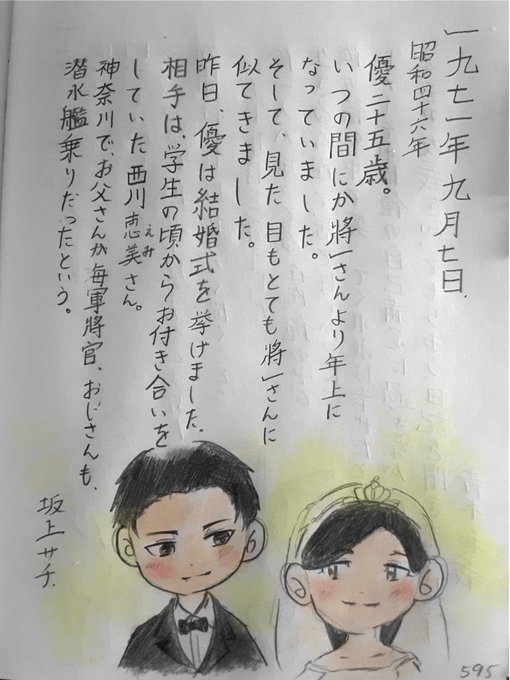 一九七一年九月七日.
昭和四十六年
優二十五歳。
いつの間にか将一さんより年上に
なっていました。
そして、見た目もとても将一さんに
似てきました。
昨日、優は結婚式を挙げました.
相手は、学生の頃からお付き合いを
していた西川恵美さん。
えみ
神奈川で、お父さんが海軍将官、おじさんも、
潜水艦乗りだったという。
坂上サチ.
595